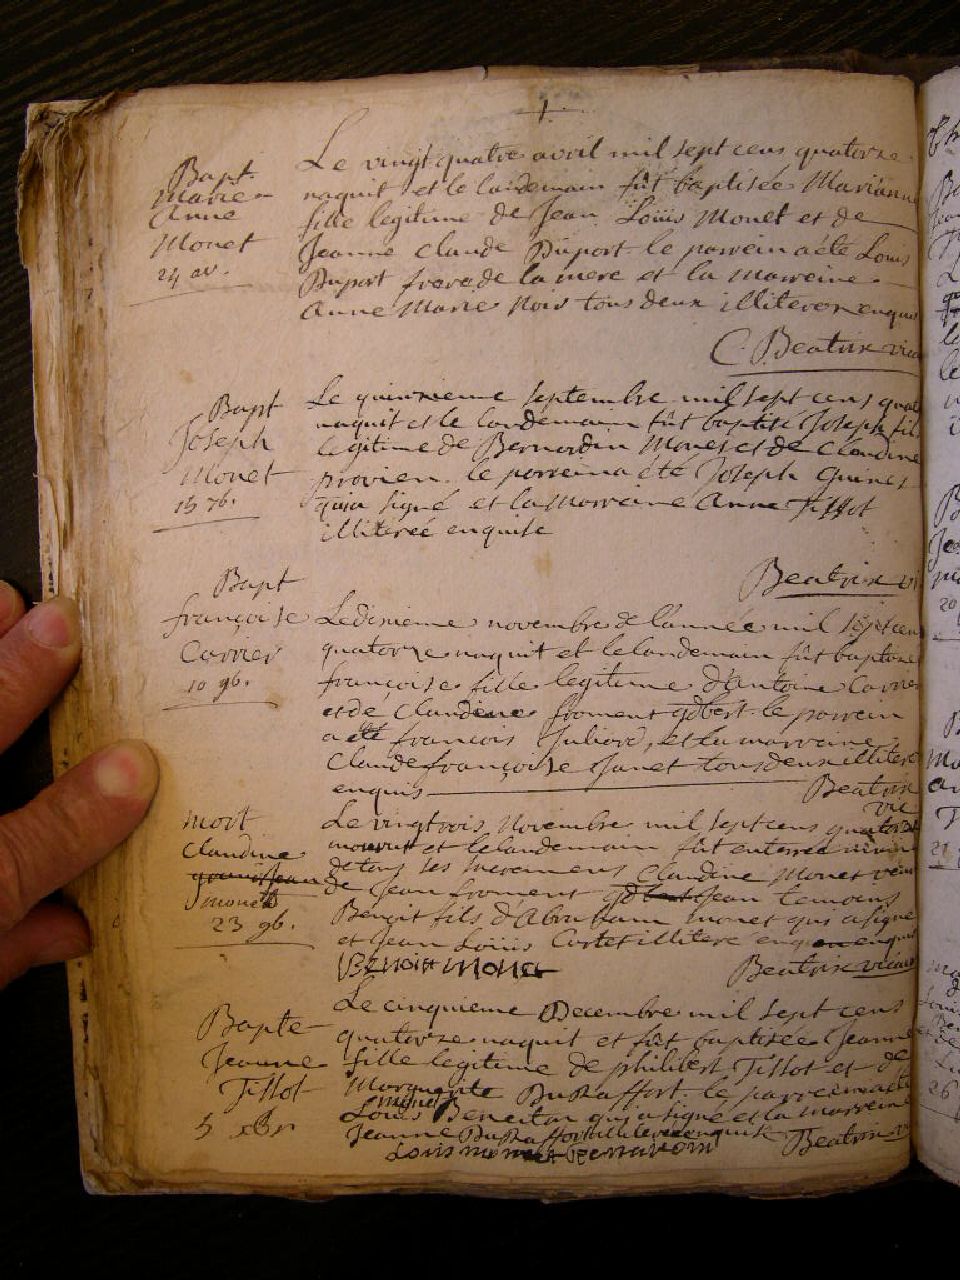 Bapt
Marie
Anne
Monet
24 av.
Le vingt quatre avril mil sept cens quatorze
naquit et le landemain fût baptisée Mariann
fille legitime de Jean Loüis Monet et de
Jeanne Claude Duport le parrein a été Louis
Duport frere de la mere et la marreine
Anne Marie Noir tous deux illiteres enquis
C. Beatrix vica
Bapt
Joseph
Monet
15 7b.
Le quinzieme septembre mil sept cens quat
naquit et le landemain fût baptisé Joseph fils
legitime de Bernardin Monet et de Claudine
provien le parrein a été Joseph
qui a signé et la marreine Anne Tissot
illiterée enquise
Beatrix vi
Bapt
françoise
Carrier
10 9b.
Le dixieme novembre de l'année mil sept cen
quatorze naquit et le landemain fût baptisée
françoise fille legitime d'Antoine Carrier
et de Claudine froment le parrein
a été francois Juliard, et la marreine
Claude françoise Janet tous deux illitere
enquis Beatrix
vic
mort
Claudine
monet
23 9b.
Le vingt trois Novembre mil sept cens quatorze
mourut et le landemain fut enterrée munie
de tous ses sacremens Claudine Monet veuve
de Jean froment temoins
Benoit fils d'Abraham monet qui a signé
et Jean Loüis illitere enquis
BENOIT MONET
Beatrix vicaire
Bapte
Jeanne
Tissot
5 xbr
Le cinquieme Decembre mil sept cens
quatorze naquit et fût baptisée Jeanne
fille legitime de philibert Tissot et de
Marguerite Duraffort. le parrein a été
Louis qui a signé et la marreine
Jeanne Duraffort illiterée enquise Beatrix vi
Louis